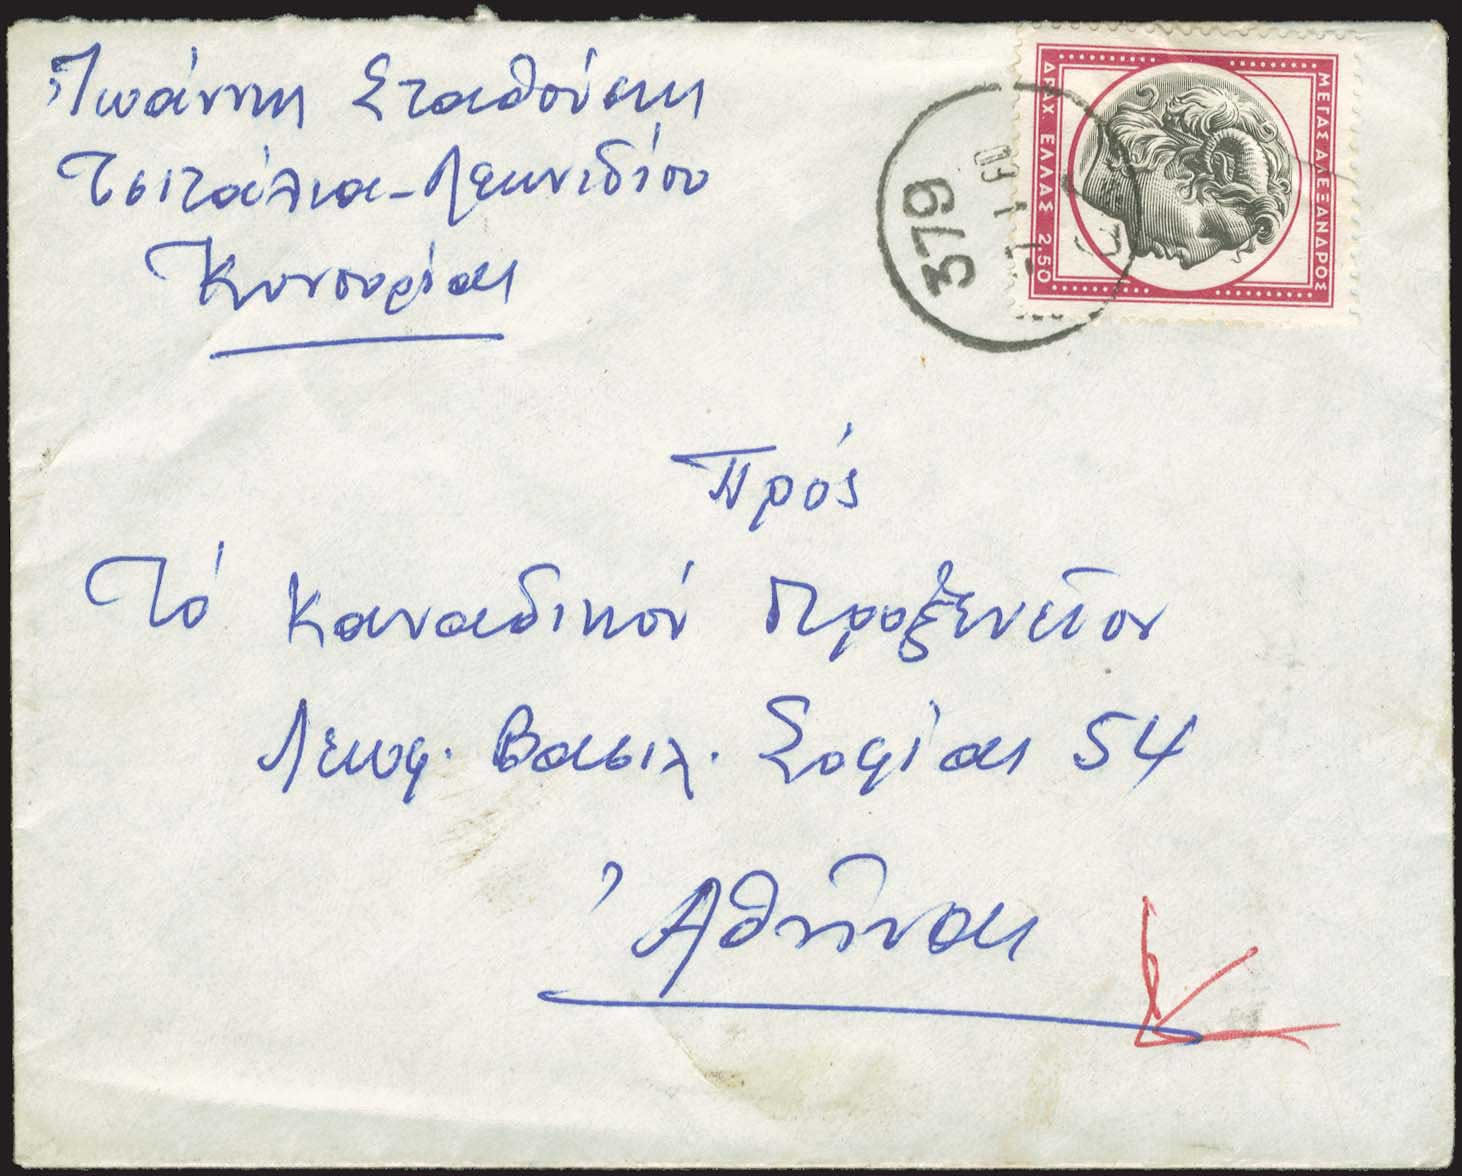 Ἰωάννης Σταθούσης
Τσιτάλια - Λεωνιδίου
Κυνουρίας
ΜΕΓΑΣ ΑΛΕΞΑΝΔΡΟΣ
ΔΡΑΧ ΕΛΛΑΣ 2.50
379
Πρός
Τό Καναδικόν Προξενεῖον
Λεωφ. Βασιλ. Σοφίας 54
Ἀθῆνας